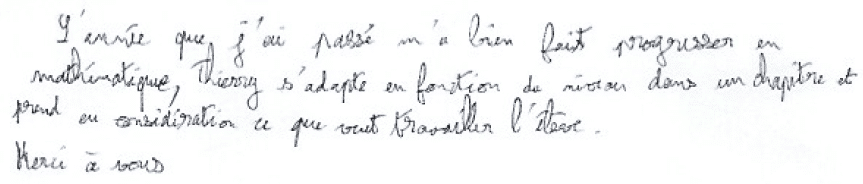 L'année que j'ai passé m'a bien fait progresser en
mathématique, Thierry s'adapte en fonction du niveau dans un chapitre et
prend en considération ce que veut travailler l'élève.
Merci à vous